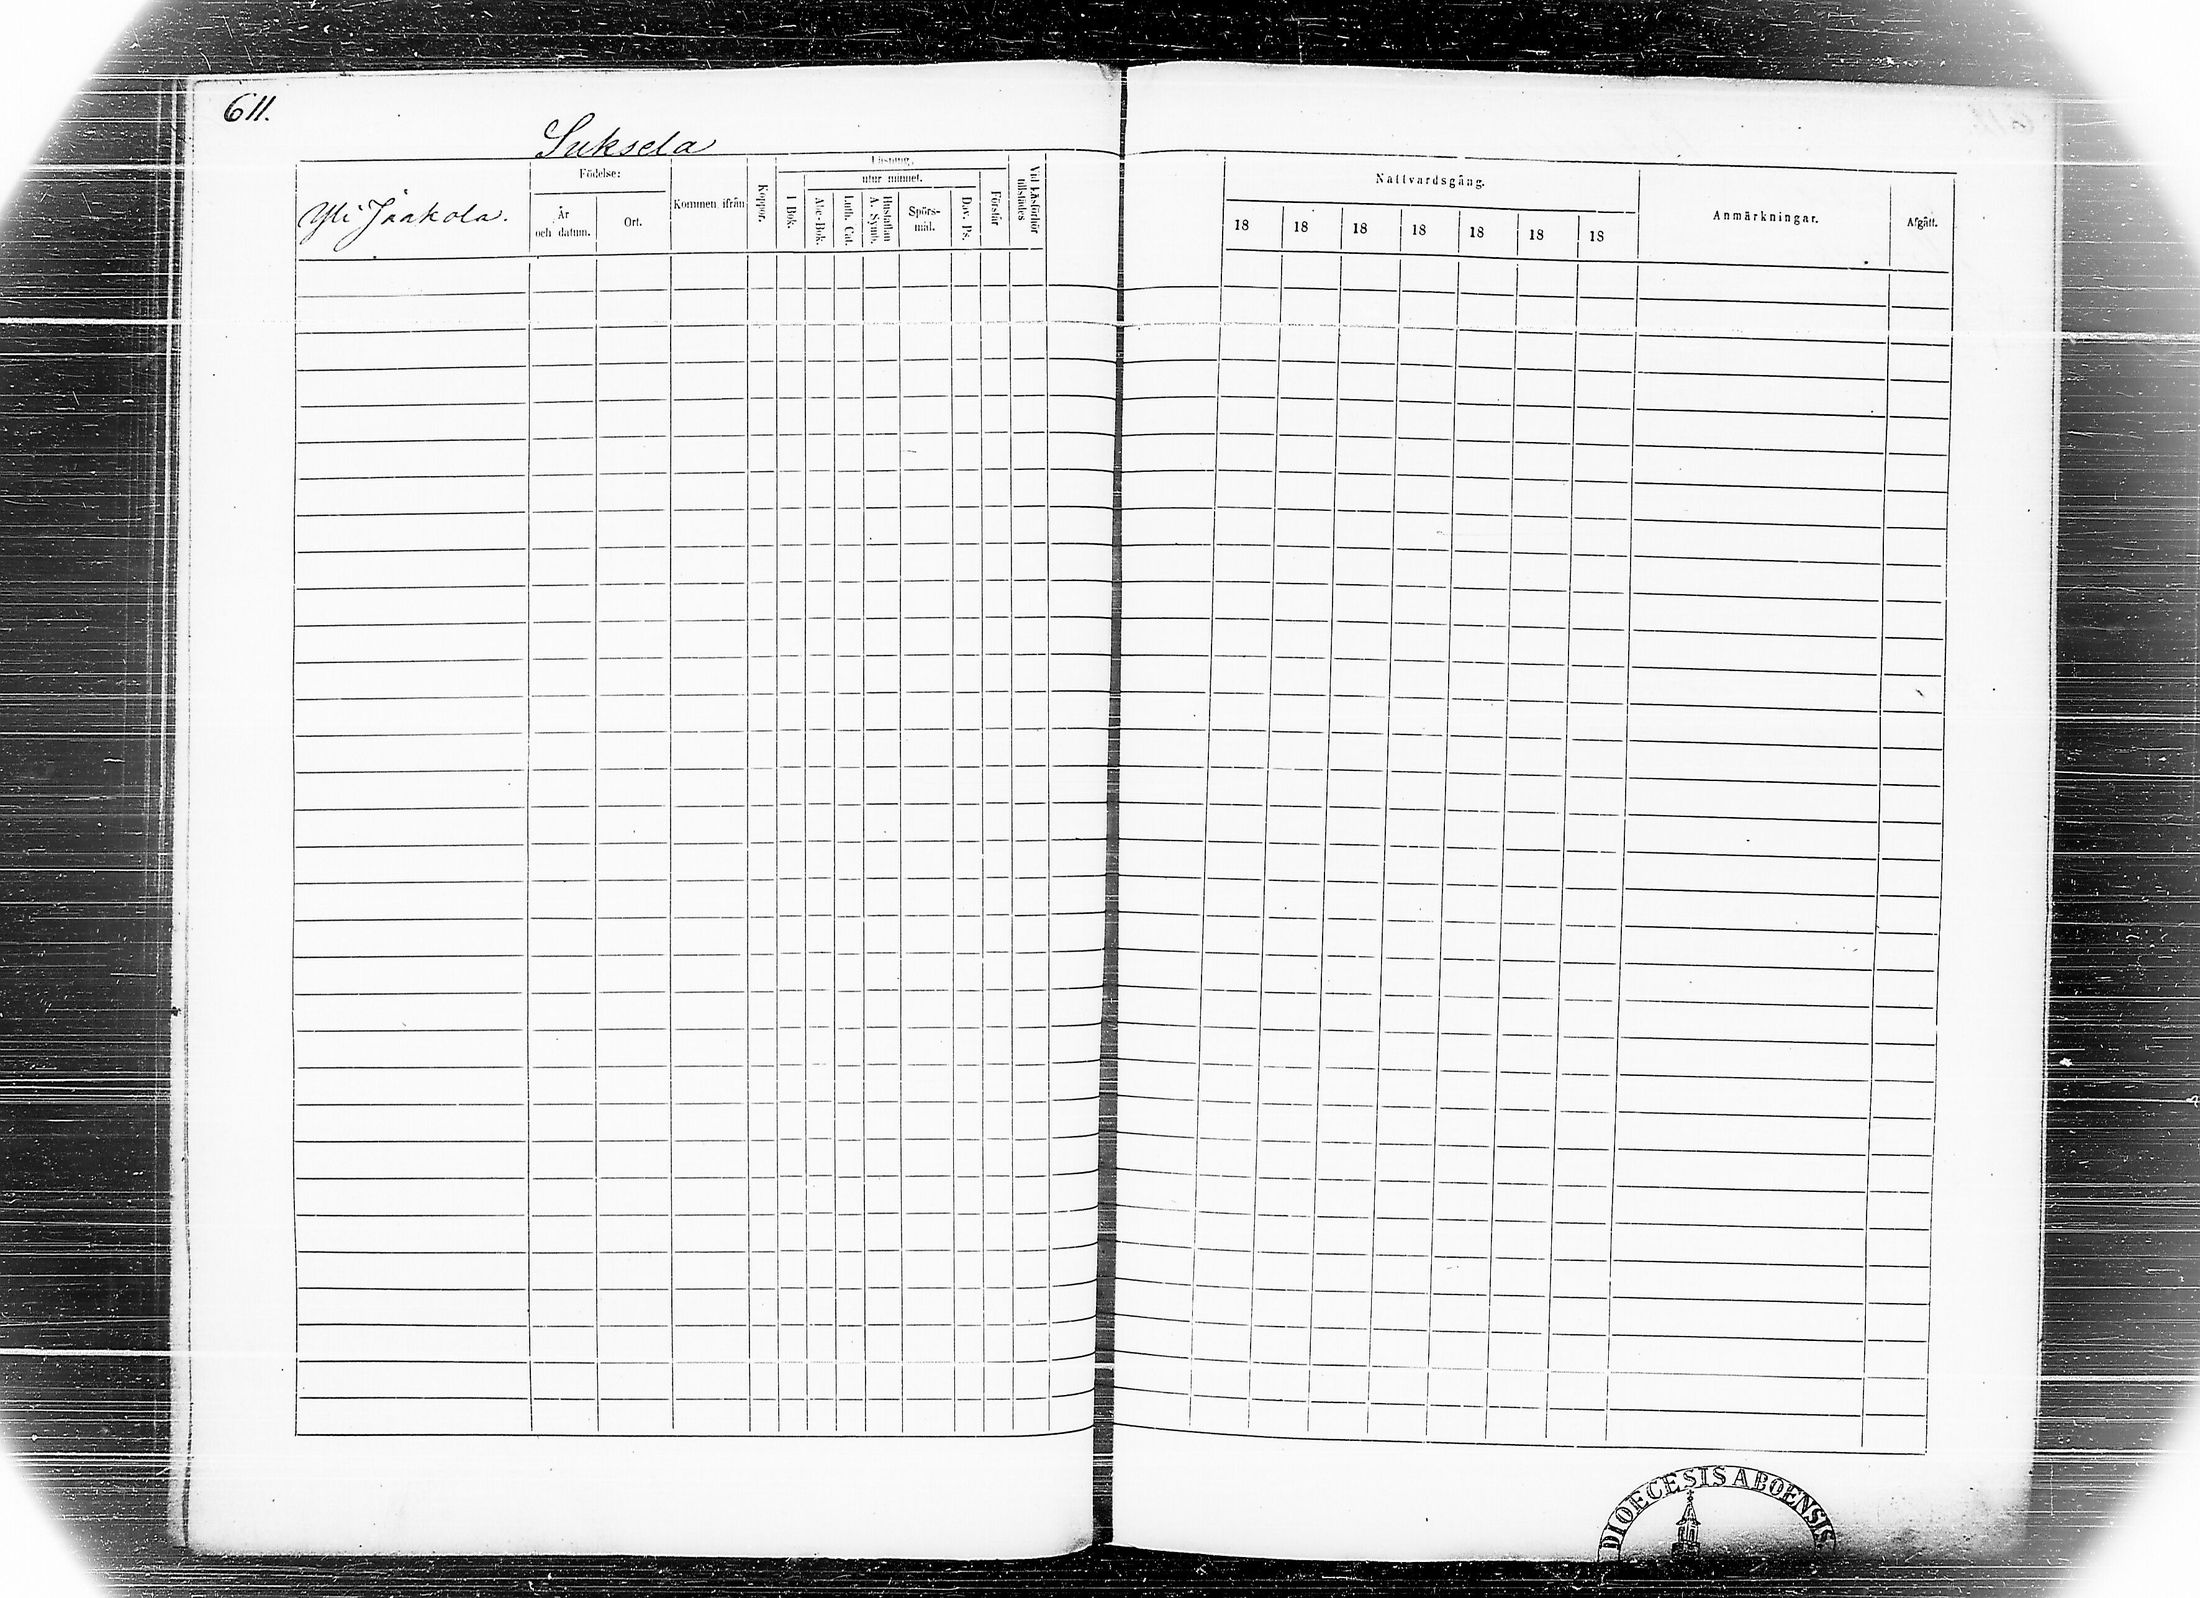 611.
Suksela
Yli Jaakola.
Födelse:
År
och datum.
Ort.
Kommen ifrån
Koppor.
Läsning,
utur minnet.
I Bok.
Abc-Bok.
Luth. Cat.
Hustaflan
A. Symb.
Spörs-
mål.
Dav. Ps.
Förstår
Vid Läsförhör
tillstädes
Nattvardsgång.
18 18 18 18 18 18 18
Anmärkningar.
Afgått.
DIOECESIS ABOENSIS